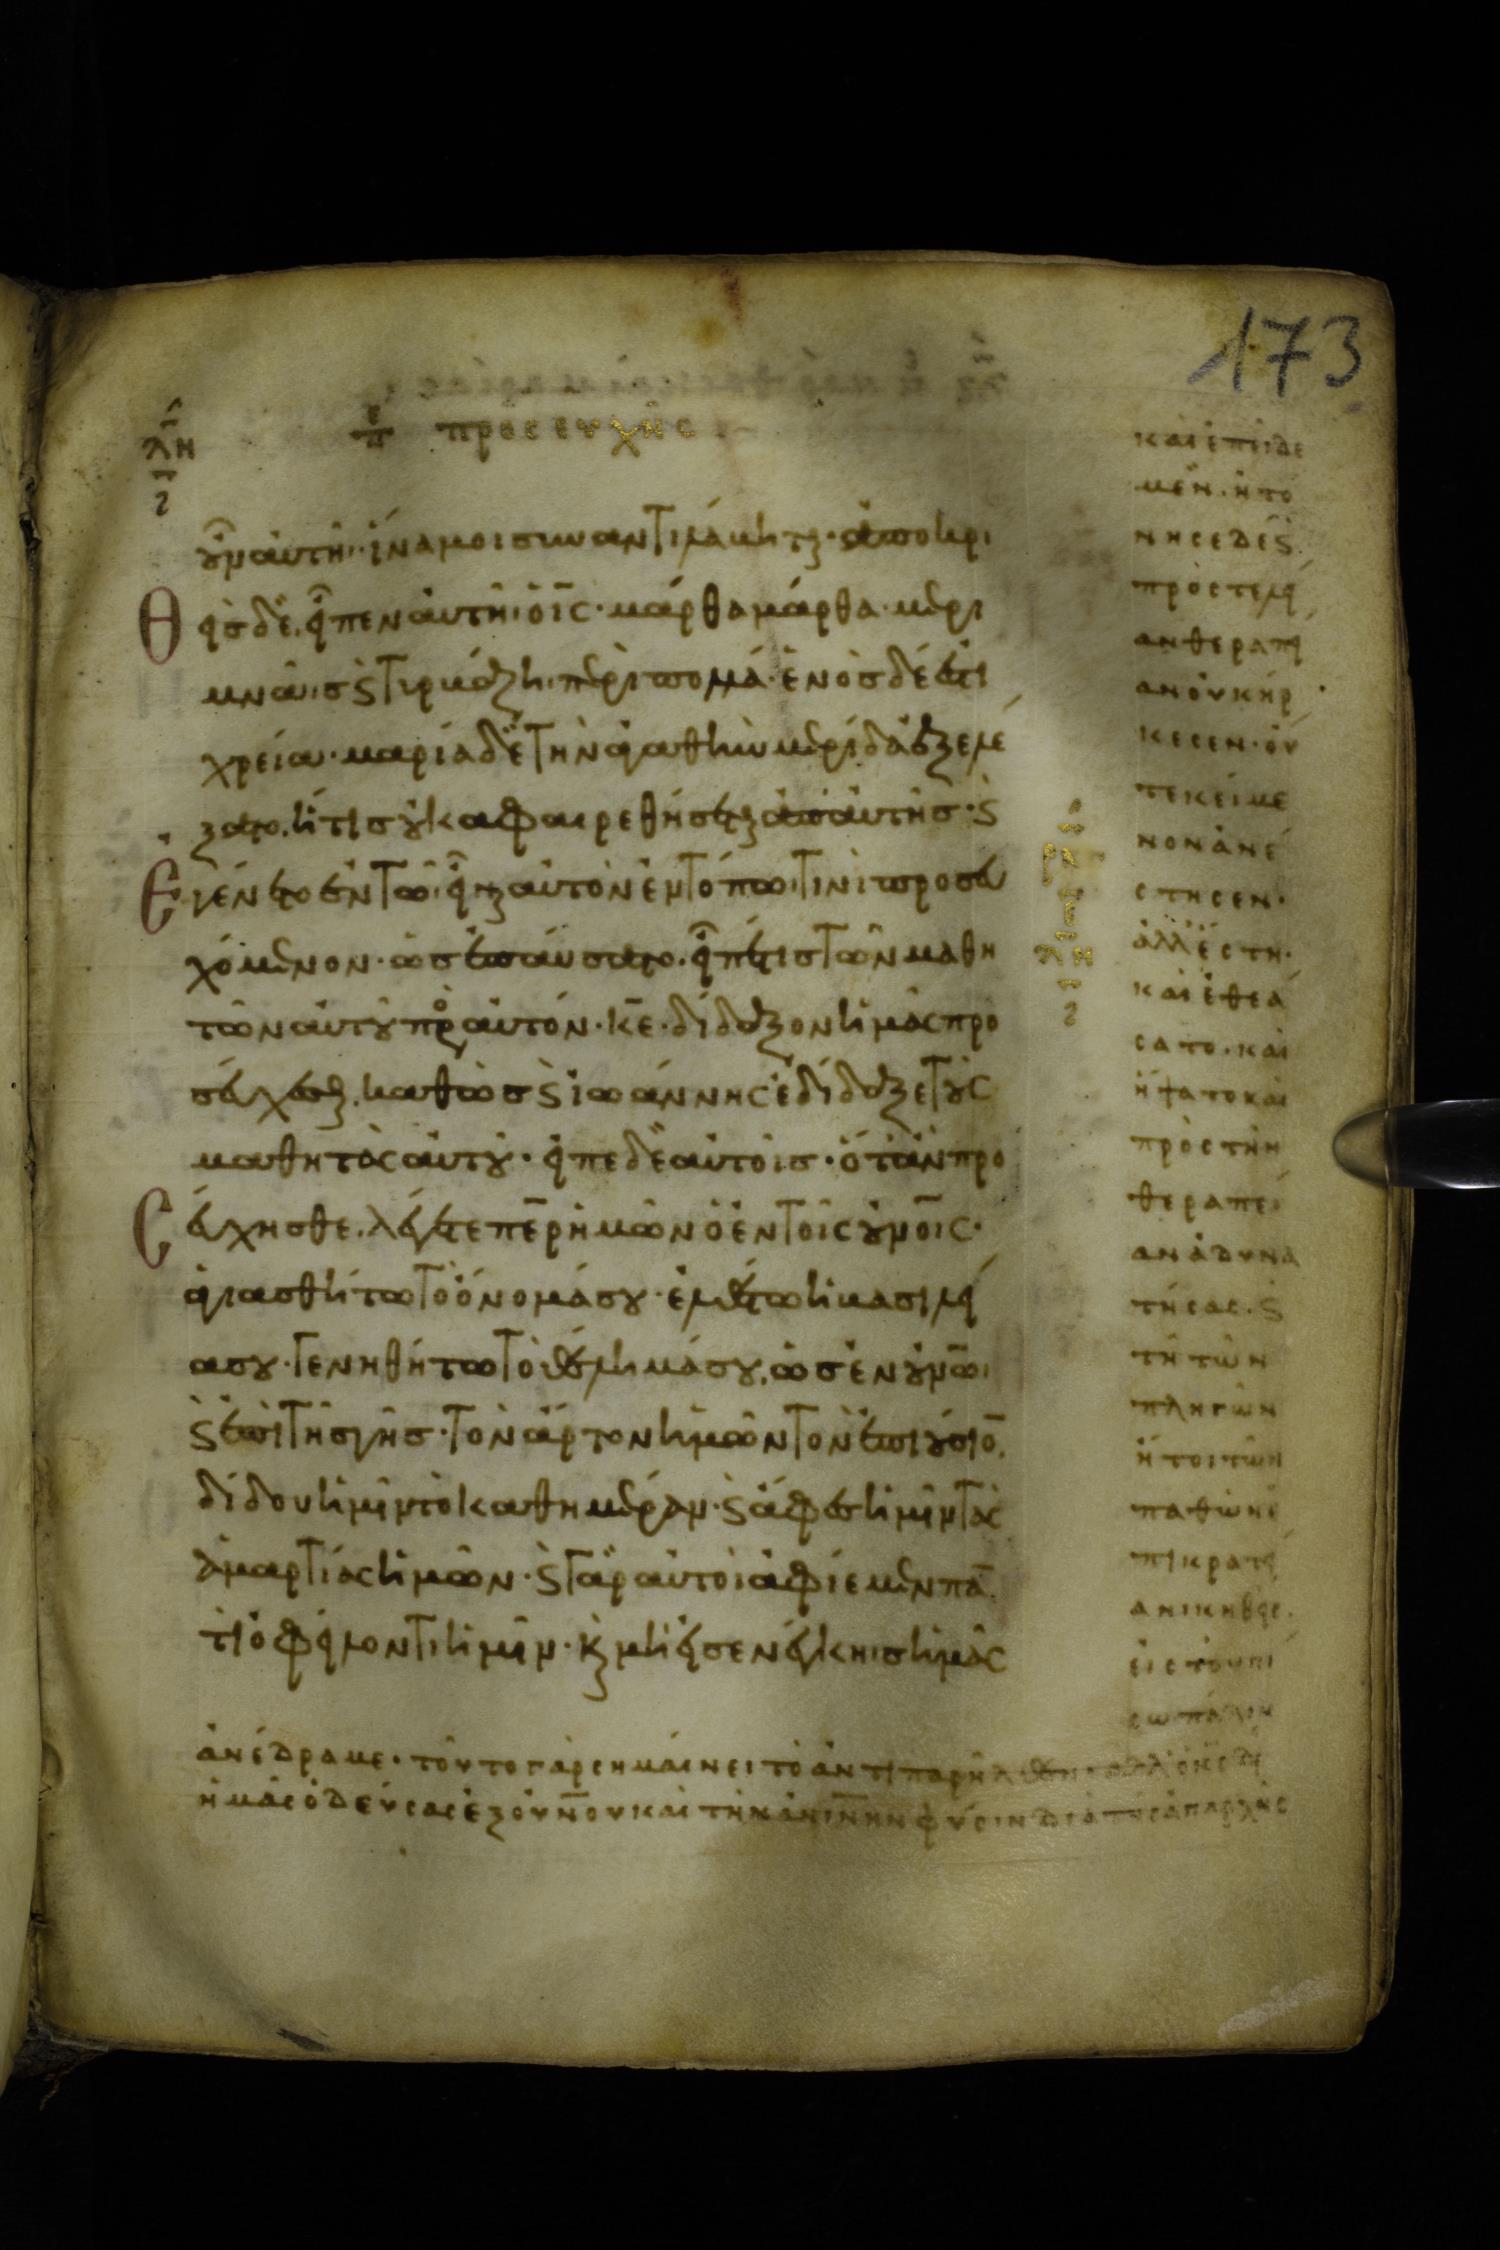 173
λη πε προσευχῆς
οὖν αὐτῇ· ἵνα μοι συναντιλάβηται· ἀποκρι
θεὶς δὲ εἶπεν αὐτῇ ὁ ις· μάρθα μάρθα· μερι
μνᾷς ϛ τυρβάζῃ περὶ πολλά· ἑνὸς δέ ἐστι
χρεία· μαρία δὲ τὴν ἀγαθὴν μερίδα ἐξελέ
ξατο, ἥτις οὐκ ἀφαιρεθήσεται ἀπ' αὐτῆς· ϛ
Ἐγένετο ἐν τῷ εἶναι αὐτὸν ἐν τόπῳ τινὶ προσευ
χόμενον· ὡς ἐπαύσατο, εἶπέ τις τῶν μαθη
τῶν αὐτοῦ πρὸς αὐτόν· κε· δίδαξον ἡμᾶς προ
σεύχεσθαι, καθὼς ϛ ἰωάννης ἐδίδαξε τοὺς
μαθητὰς αὐτοῦ· εἶπε δὲ αὐτοῖς· ὅταν προ
σεύχησθε, λέγετε περ ἡμῶν ὁ ἐν τοῖς οὐνοις·
ἁγιασθήτω τὸ ὄνομά σου· ἐλθέτω ἡ βασιλεί
α σου· γενηθήτω τὸ θέλημά σου, ὡς ἐν οὐνω
ϛ ἐπὶ τῆς γῆς· τὸν ἄρτον ἡμῶν τὸν ἐπιούσιον
δίδου ἡμῖν τὸ καθημέραν· ϛ ἄφες ἡμῖν τὰς
ἁμαρτίας ἡμῶν· ϛ γὰρ αὐτοὶ ἀφίεμεν παν
τὶ ὀφείλοντι ἡμῖν· καὶ μὴ εἰσενέγκῃς ἡμᾶς
καὶ ἐπεῖδε
μὲν· ἢ τὸ
πρὸς τελεί
αν θεραπεί
αν οὐκ ἤρ
κεσεν· οὔ
τε κείμε
νον ἀνέ
στησεν·
ἀλλ' ἔστη·
καὶ ἐθεά
σατο· καὶ
ἥψατο καὶ
πρὸς τὴν
θεραπεί
αν ἀδυνα
τήσας· ϛ
τῇ τῶν
πληγῶν
ἤτοι τῶν
παθῶν ἐ
πικρατεί
α νικηθεὶς
εἰς τοὐπί
σω πάλιν
ἀνέδραμε· τοῦτο γὰρ σημαίνει τὸ ἀντιπαρῆλθεν·